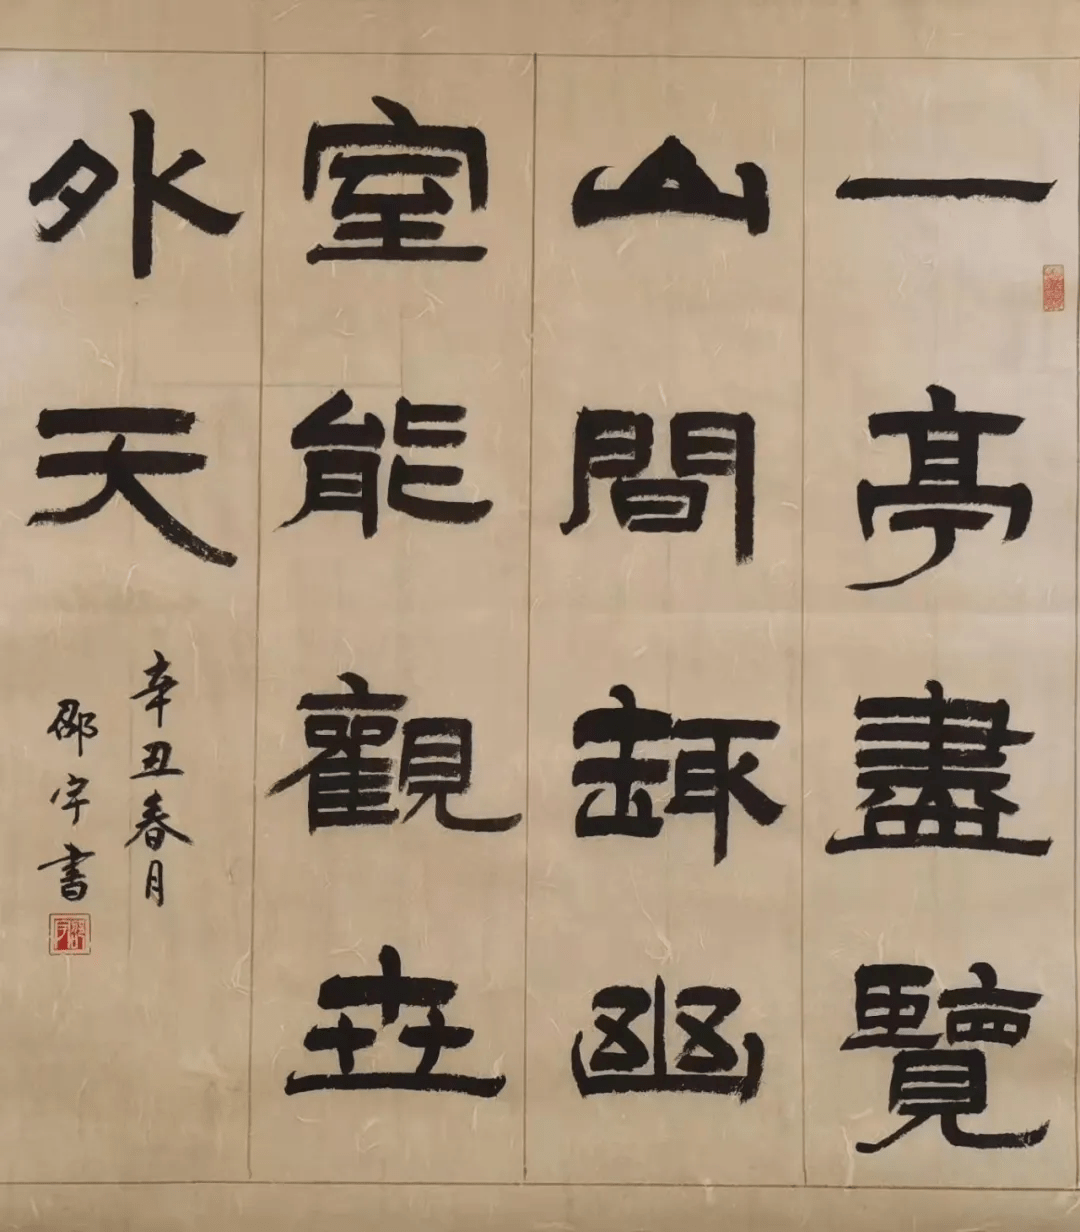 一亭盡覽
山間趣幽
室能觀世
外天
辛丑春月
邵宇書